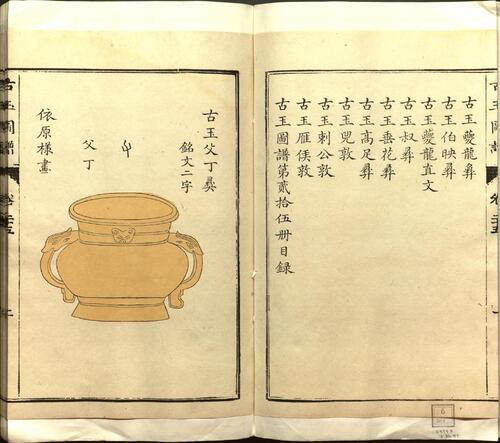 古玉圖譜
古玉夔龍彝
古玉伯映彝
古玉夔龍直文
古玉叔彝
古玉垂花彝
古玉高足彝
古玉兕敦
古玉刺公敦
古玉雁侯敦
古玉圖譜第貳拾伍册目録
古玉父丁彝
銘文二字
父丁
依原樣畫
古玉圖譜
卷二十五
6